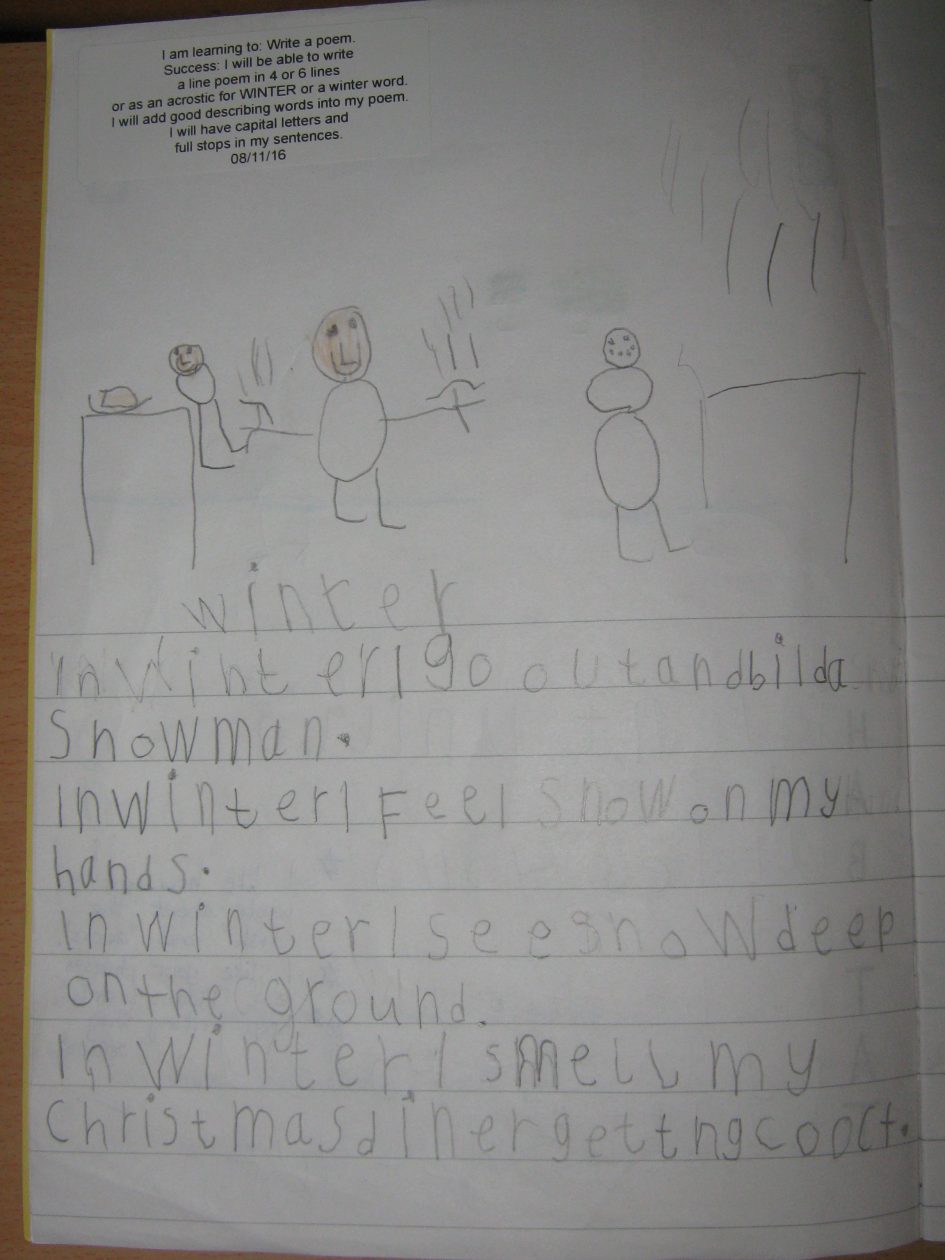 I am learning to: Write a poem.
Success: I will be able to write
a line poem in 4 or 6 lines
or as an acrostic for WINTER or a winter word.
I will add good describing words into my poem.
I will have capital letters and
full stops in my sentences.
08/11/16
winter
In Winter I go out and bild a
Snowman.
In Winter I Feel snow on my
hands.
In winter I see snow deep
on the ground.
In Winter I smell my
Christmas diner gettng cooct.